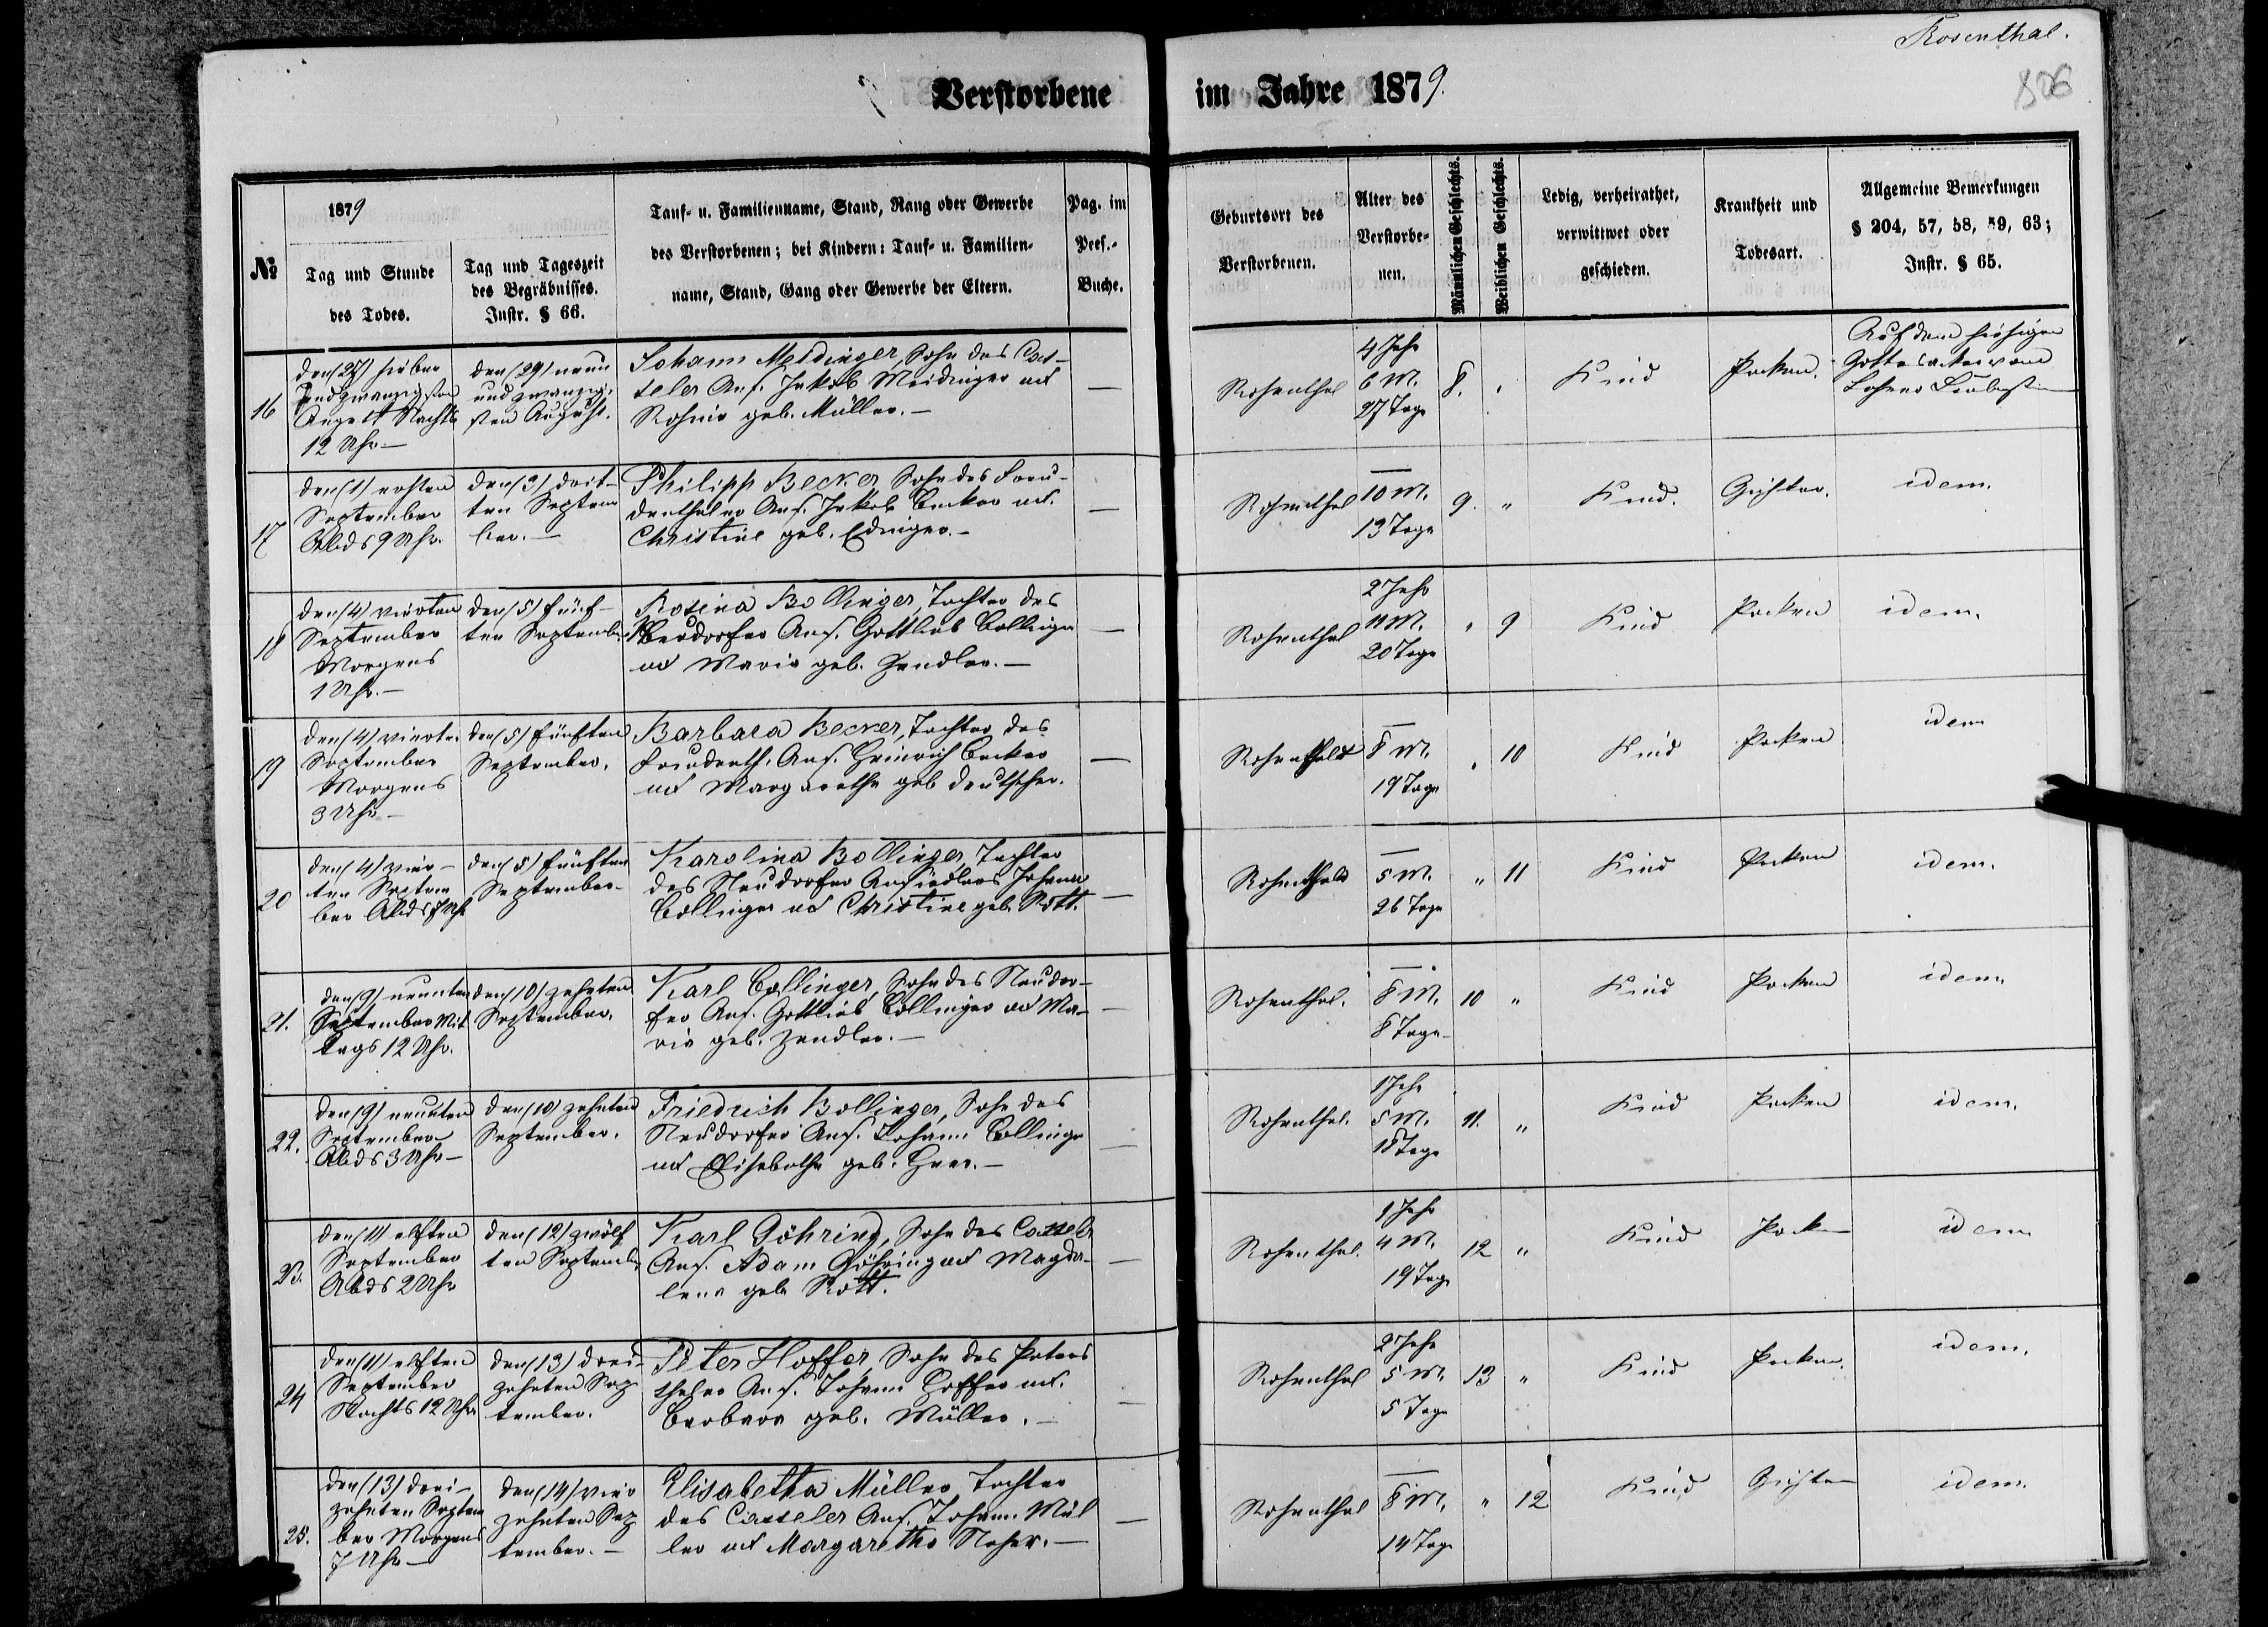 Rosenthal.
826
Verstorbene im Jahre 1879.
№
1879
Tag und Stunde
des Todes.
Tag und Tageszeit
des Begräbnisses.
Instr. § 66.
Tauf- u. Familienname, Stand, Rang oder Gewerbe
des Verstorbenen; bei Kindern: Tauf- u. Familien-
name, Stand, Gang oder Gewerbe der Eltern.
Pag. im
Pers.-
Buche.
Geburtsort des
Verstorbenen.
Alter des
Verstorbe-
nen.
Männlichen Geschlechts.
Weiblichen Geschlechts.
Ledig, verheirathet,
verwittwet oder
geschieden.
Krankheit und
Todesart.
Allgemeine Bemerkungen
§ 204, 57, 58, 59, 63;
Instr. § 65.
16
den (27) sieben
undzwanzigsten
August Nachts
12 Uhr —
den (29) neun
und zwanzig-
sten August.
Johann Meidinger, Sohn des Cas-
seler Ans. Jakob Meidinger und
Rosine geb. Müller. —
—
Rosenthal
4 Jahr
6 M.
27 Tage
8.
"
Kind
Pocken.
Auf dem hiesigen
Gottesacker vom
Lehrer
17
den (1) ersten
September
Abds 9 Uhr.
den (3) drit-
ten Septem
ber. —
Philipp Becker Sohn des Freu-
denthaler Ans. Jakob Becker und
Christine geb. Edinger. —
—
Rosenthal
—
10 M.
13 Tage
9.
"
Kind.
Gichter.
idem.
18
den (4) vierten
September
Morgens
1 Uhr. —
den (5) fünf-
ten Septemb.
Rosina Bollinger, Tochter des
Neudorfer Ans. Gottlieb Bollinger
und Maria geb. Zendler. —
—
Rosenthal
2 Jahr
11 M.
20 Tage
"
9
Kind
Pocken
idem.
19
den (4) vierten
September
Morgens
3 Uhr —
den (5) fünften
September.
Barbara Becker, Tochter des
Freudenth. Ans. Heinrich Becker
und Margarethe geb Deutscher.
—
Rosenthal
—
8 M.
19 Tage
"
10
Kind
Pocken
idem
20
den (4) vier-
ten Septem
ber Abds 7 Uhr
den (5) fünften
September
Karolina Bollinger, Tochter
des Neudorfer Ansiedlers Johann
Bollinger und Christine geb. Rott.
—
Rosenthal
—
5 M.
26 Tage
"
11
Kind
Pocken
idem.
21.
den (9) neunten
September Mit
tags 12 Uhr.
den (10) zehnten
September.
Karl Bollinger, Sohn des Neudor-
fer Ans. Gottlieb Bollinger und Ma-
ria geb. Zendler. —
—
Rosenthal.
—
8 M.
8 Tage
10
"
Kind
Pocken
idem.
22.
den (9) neunten
September
Abds 3 Uhr —
den (10) zehnten
September.
Friedrich Bollinger, Sohn des
Neudorfer Ans. Johann Bollinger
und Elisabethe geb. —
—
Rosenthal.
1 Jahr
5 M.
18 Tage
11.
"
Kind
Pocken
idem.
23.
den (11) elften
September
Abds 2 Uhr
den (12) zwölf
ten Septemb.
Karl Göhring, Sohn des Casseler
Ans. Adam Göhring und Magda-
lena geb Rott.
—
Rosenthal.
1 Jahr
4 M.
19 Tage
12
"
Kind
Pocken
idem
24
den (11) elften
September
Nachts 12 Uhr
den (13) drei-
zehnten Sep
tember.
Peter Hoffer, Sohn des Peters
thaler Ans. Johann Hoffer und
Barbara geb. Müller. —
—
Rosenthal
2 Jahr
5 M.
5 Tage
13
"
Kind
Pocken.
idem.
25.
den (13) drei-
zehnten Septem
ber Morgens
7 Uhr —
den (14) vier
zehnten Sep
tember. —
Elisabetha Müller, Tochter
des Casseler Ans. Johann Mül
ler und Margaretha Neher. —
—
Rosenthal
—
8 M.
14 Tage
"
12
Kind
Gichter
idem.